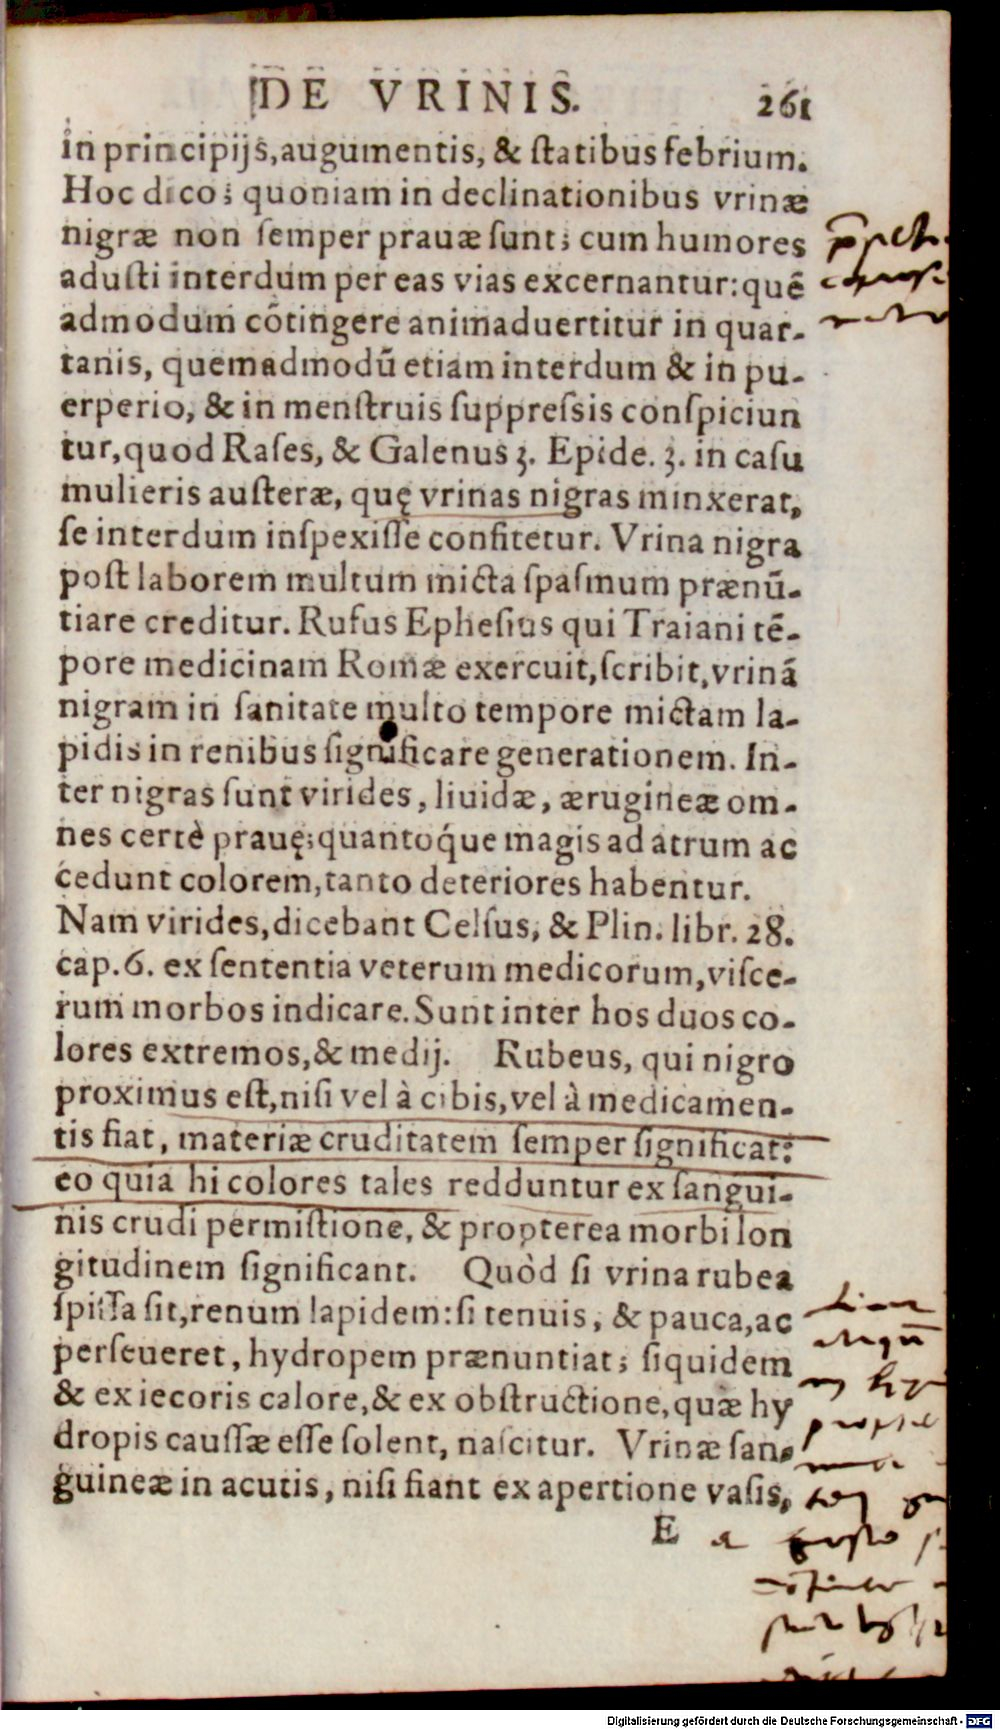 DE VRINIS. 261
in principijs, augumentis, & ſtatibus febrium.
Hoc dico; quoniam in declinationibus vrinæ
nigræ non ſemper prauæ ſunt; cum humores
aduſti interdum per eas vias excernantur: quẽ
admodum cõtingere animaduertitur in quar-
tanis, quemadmodũ etiam interdum & in pu-
erperio, & in menſtruis ſuppreſsis conſpiciun
tur, quod Raſes, & Galenus 3. Epide. 3. in caſu
mulieris auſteræ, quę vrinas nigras minxerat,
ſe interdum inſpexiſſe confitetur. Vrina nigra
poſt laborem multum micta ſpaſmum prænũ-
tiare creditur. Rufus Epheſius qui Traiani tẽ-
pore medicinam Romæ exercuit, ſcribit, vrinã
nigram in ſanitate multo tempore mictam la-
pidis in renibus ſignificare generationem. In-
ter nigras ſunt virides, liuidæ, ærugineæ om-
nes certè prauę; quantoq́ue magis ad atrum ac
cedunt colorem, tanto deteriores habentur.
Nam virides, dicebant Celſus, & Plin. libr. 28.
cap. 6. ex ſententia veterum medicorum, viſce-
rum morbos indicare. Sunt inter hos duos co-
lores extremos, & medij. Rubeus, qui nigro
proximus eſt, niſi vel à cibis, vel à medicamen-
tis fiat, materiæ cruditatem ſemper ſignificat:
eo quia hi colores tales redduntur ex ſangui-
nis crudi permiſtione, & propterea morbi lon
gitudinem ſignificant. Quòd ſi vrina rubea
ſpiſſa ſit, renum lapidem: ſi tenuis, & pauca, ac
perſeueret, hydropem prænuntiat; ſiquidem
& ex iecoris calore, & ex obſtructione, quæ hy
dropis cauſſæ eſſe ſolent, naſcitur. Vrinæ ſan-
guineæ in acutis, niſi fiant ex apertione vaſis,
E
Digitalisierung gefördert durch die Deutsche Forschungsgemeinschaft - DFG